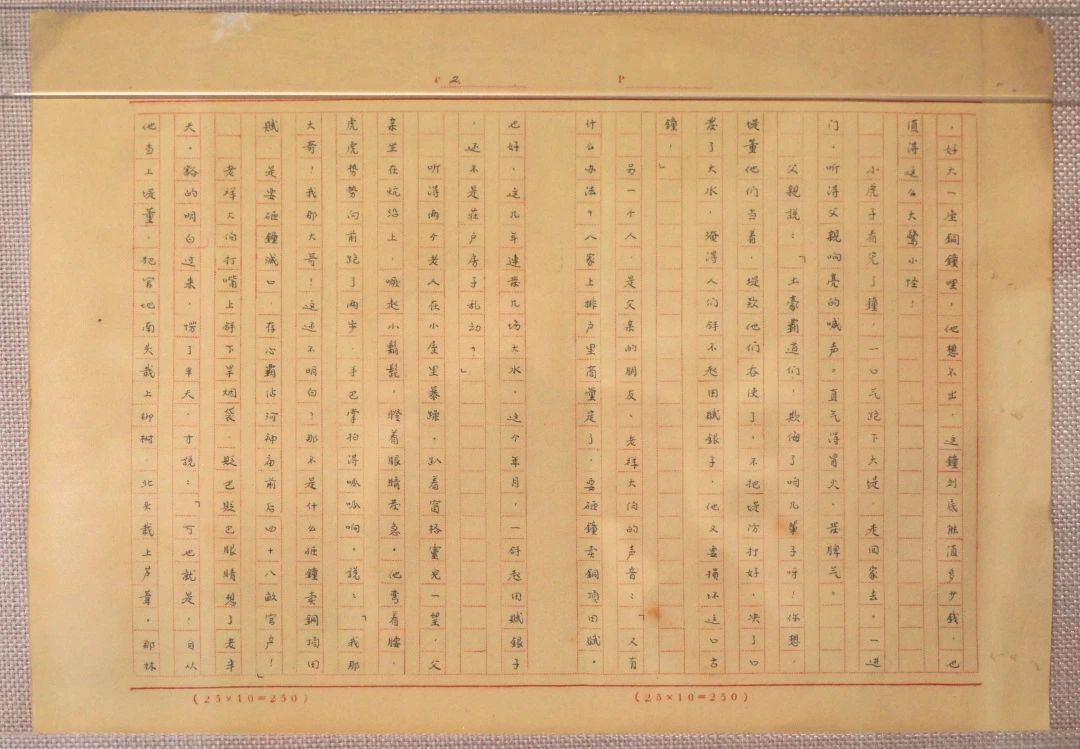 P 2
P
，好大一座銅鐘哩，他想不出，这鐘到底能值多少钱，也
值得这么大驚小怪！
小虎子看完了鐘，一口气跑下大堤，走回家去。一進
门，听得父親响亮的喊声。直气得冒火、發脾气。
父親說：「土豪霸道们！欺侮了咱几輩子呀！你想，
堤董他们当着，堤款他们吞使了，不把堤防打好，决了口
發了大水，淹得人们拿不起田賦銀子，他又要損坏这口古
鐘，」
另一个人，是父亲的朋友、老祥大伯的声音：「又有
什么办法？人家上排户里商量定了，要砸鐘卖銅項田賦。
也好，这几年連發几场大水，这个年月，一拿起田賦銀子
，还不是莊户房子乱动？」
听得两个老人在小屋里暴躁，趴着窗格櫺兒一望，父
亲坐在炕沿上，噘起小鬍髭，瞪着眼睛發急。他弯着腰，
虎虎势势向前跑了两步，手巴掌拍得呱呱响。說：「我那
大哥！我那大哥！这还不明白？那不是什么砸鐘卖銅項田
賦，是要砸鐘滅口，存心霸佔河神庙前后四十八畝官产！」
老祥大伯打嘴上拿下旱烟袋，眨巴眨巴眼睛想了老半
天。豁的明白过来，愣了半天，才說：「可也就是！自从
他当上堤董，把官地南头栽上柳树，北头栽上芦葦，那林
(25×10=250)
(25×10=250)